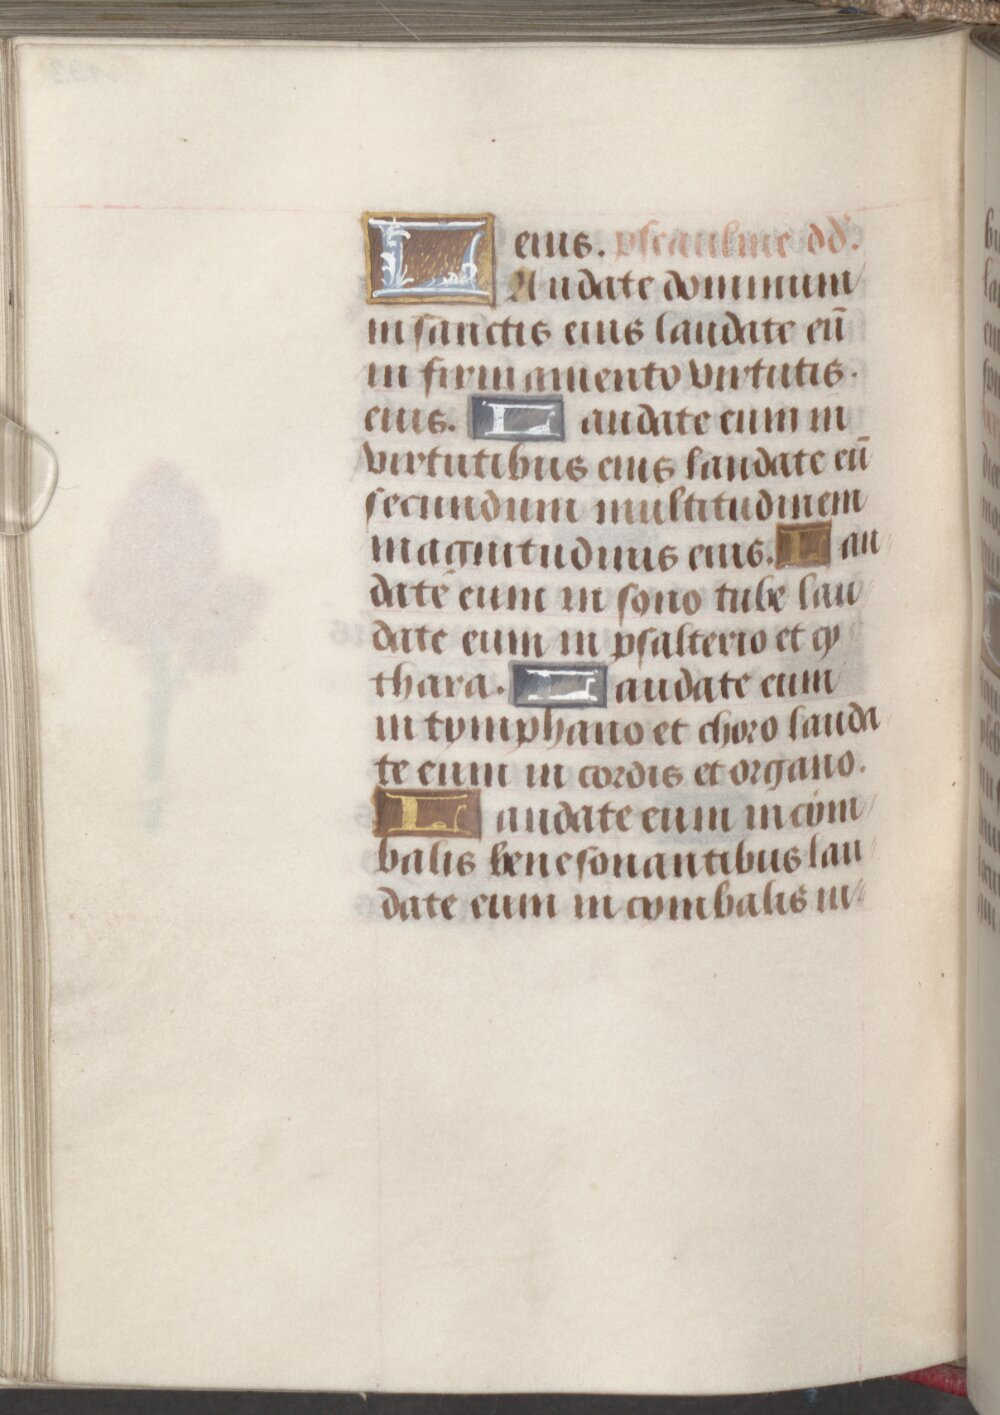 eius. pseaulme dd.
L Audate dominum
in sanctis eius laudate eū
in firmamento virtutis
eius. L audate eum in
virtutibus eius laudate eū
secundum multitudinem
magnitudinis eius. L au
date eum in sono tube lau
date eum in psalterio et cy
thara. L audate eum
in tymphano et choro lauda
te eum in cordis et organo.
L audate eum in cym
balis benesonantibus lau
date eum in cymbalis iu